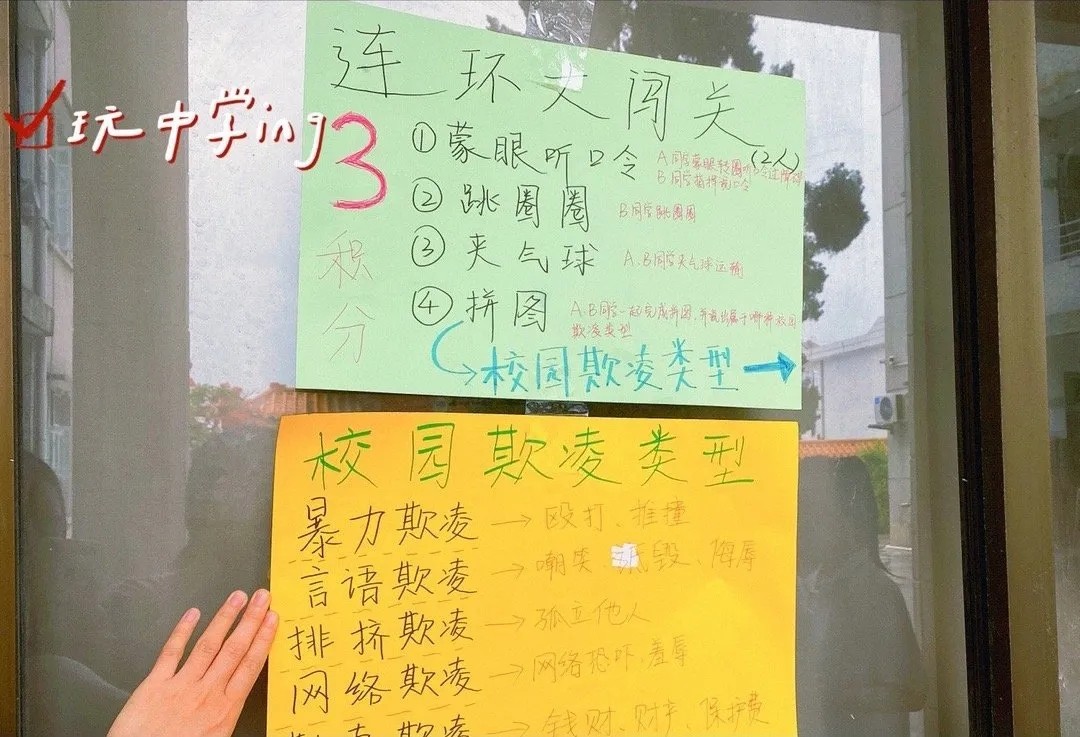 玩中学ing
连环大闯关
3
积分
①蒙眼听口令(2人)
A.同学蒙眼转圈听口令过障碍
B.同学指挥说口令
②跳圈圈
B同学跳圈圈
③夹气球
A.B同学夹气球运输
④拼图
A.B同学一起完成拼图,并说出属于哪种校园
欺凌类型
校园欺凌类型
校园欺凌类型
暴力欺凌→殴打、推撞
言语欺凌→嘲笑、诋毁、侮辱
排挤欺凌→孤立他人
网络欺凌→网络恐吓、羞辱
欺凌 钱财、财产、保护费